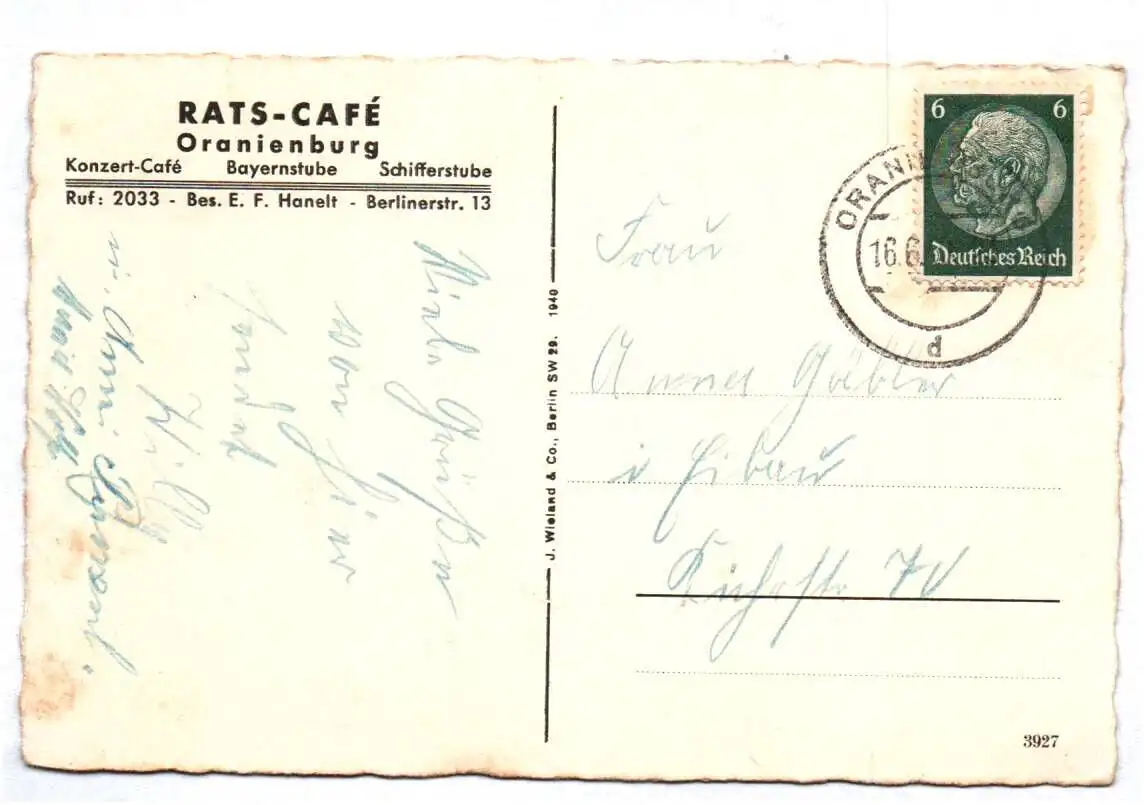 RATS-CAFÉ
Oranienburg
Konzert-Café Bayernstube Schifferstube
Ruf: 2033 - Bes. E. F. Hanelt - Berlinerstr. 13
Viele Grüße
von hier
sendet
Willy
J. Wieland & Co., Berlin SW 29. 1940
6 6
Deutsches Reich
ORANI
16.6.
d
Frau
Anna Gäbler
i Eibau
Kirchstr 70
3927